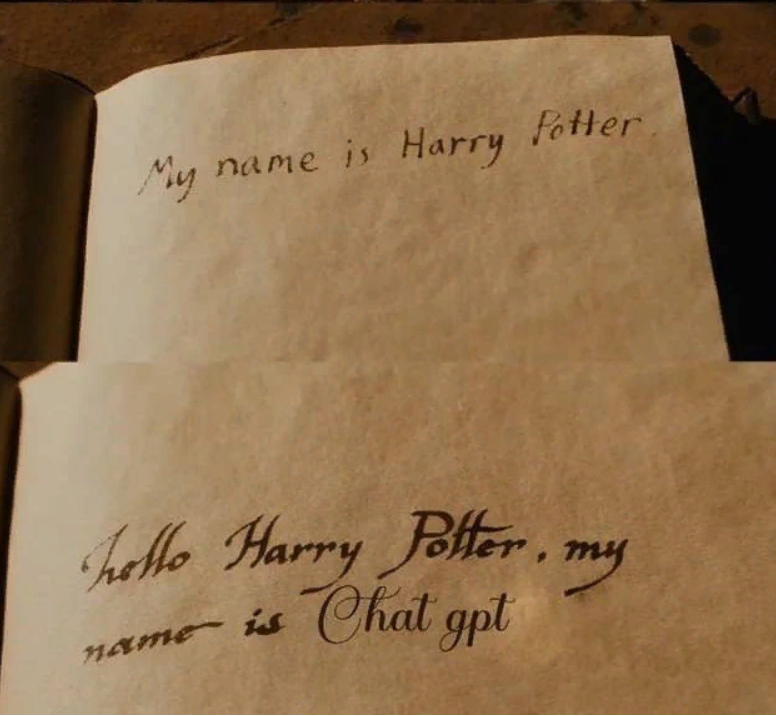 My name is Harry Potter.
hello Harry Potter. my
name is Chat gpt